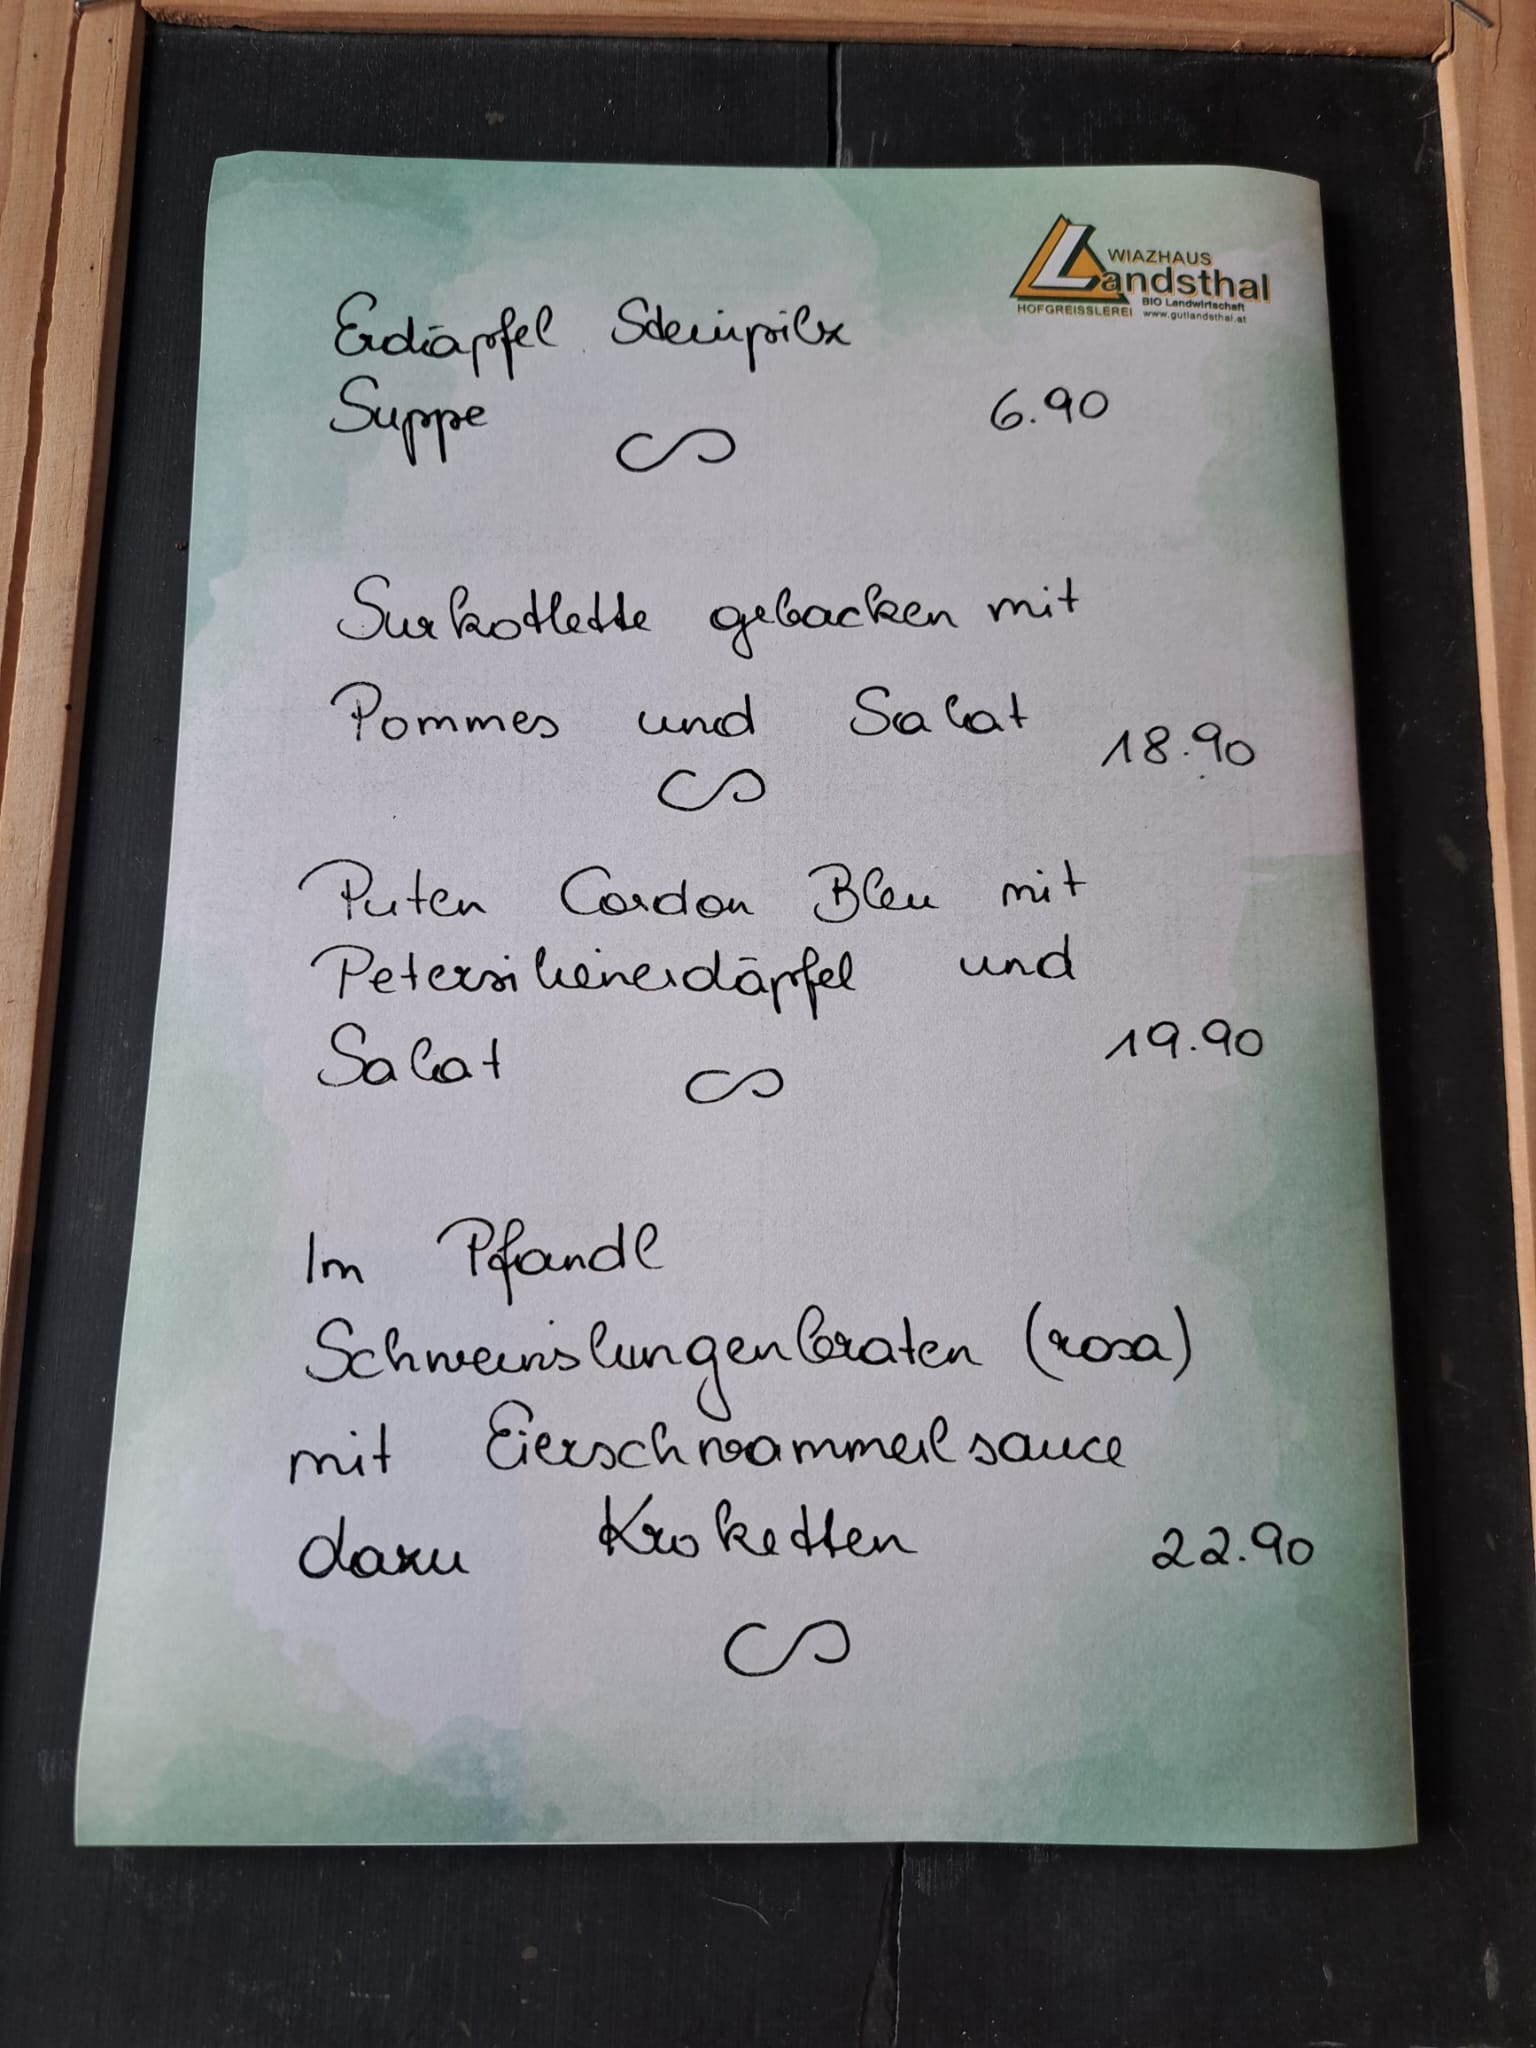 WIAZHAUS
Landsthal
BIO Landwirtschaft
HOFGREISSLEREI www.gutlandsthal.at
Erdäpfel Steinpilz
Suppe 6.90
Surkotlette gebacken mit
Pommes und Salat 18.90
Puten Cordon Bleu mit
Petersilienerdäpfel und
Salat 19.90
Im Pfandl
Schweinslungenbraten (rosa)
mit Eierschwammerlsauce
dazu Kroketten 22.90